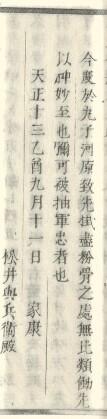 今度於丸子河原致先掛盡粉骨之處無比類働先
以神妙至也彌可被抽軍忠者也
天正十三乙酉九月十一日　家康
松井與兵衛殿